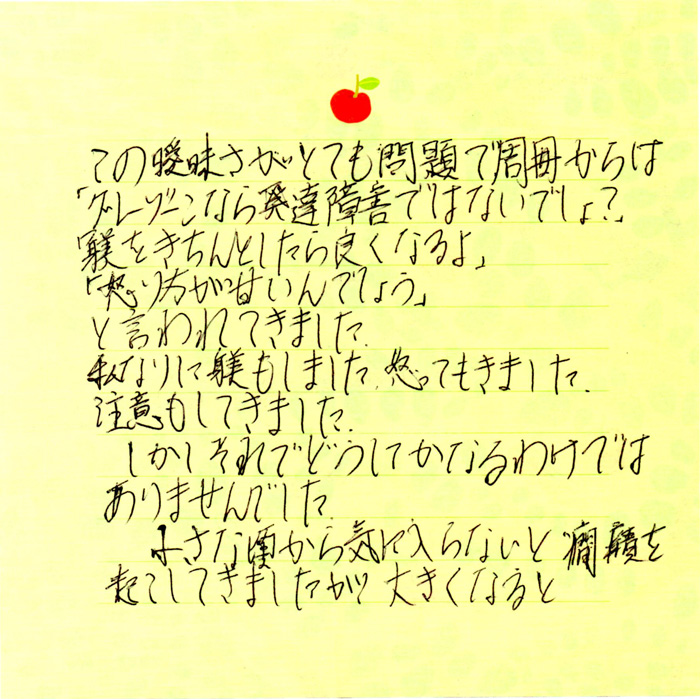 この曖昧さがとても問題で周毋からは
「グレーゾーンなら発達障害ではないでしょ?」
躾をきちんとしたら良くなるよ」
「怒り方が甘いんでしょう」
と言われてきました.
私なりに躾もしました.怒ってもきました.
注意もしてきました.
しかしそれでどうしてかなるわけでは
ありませんでした.
小さな頃から気に入らないと癇癪を
起こしてきましたが大きくなると